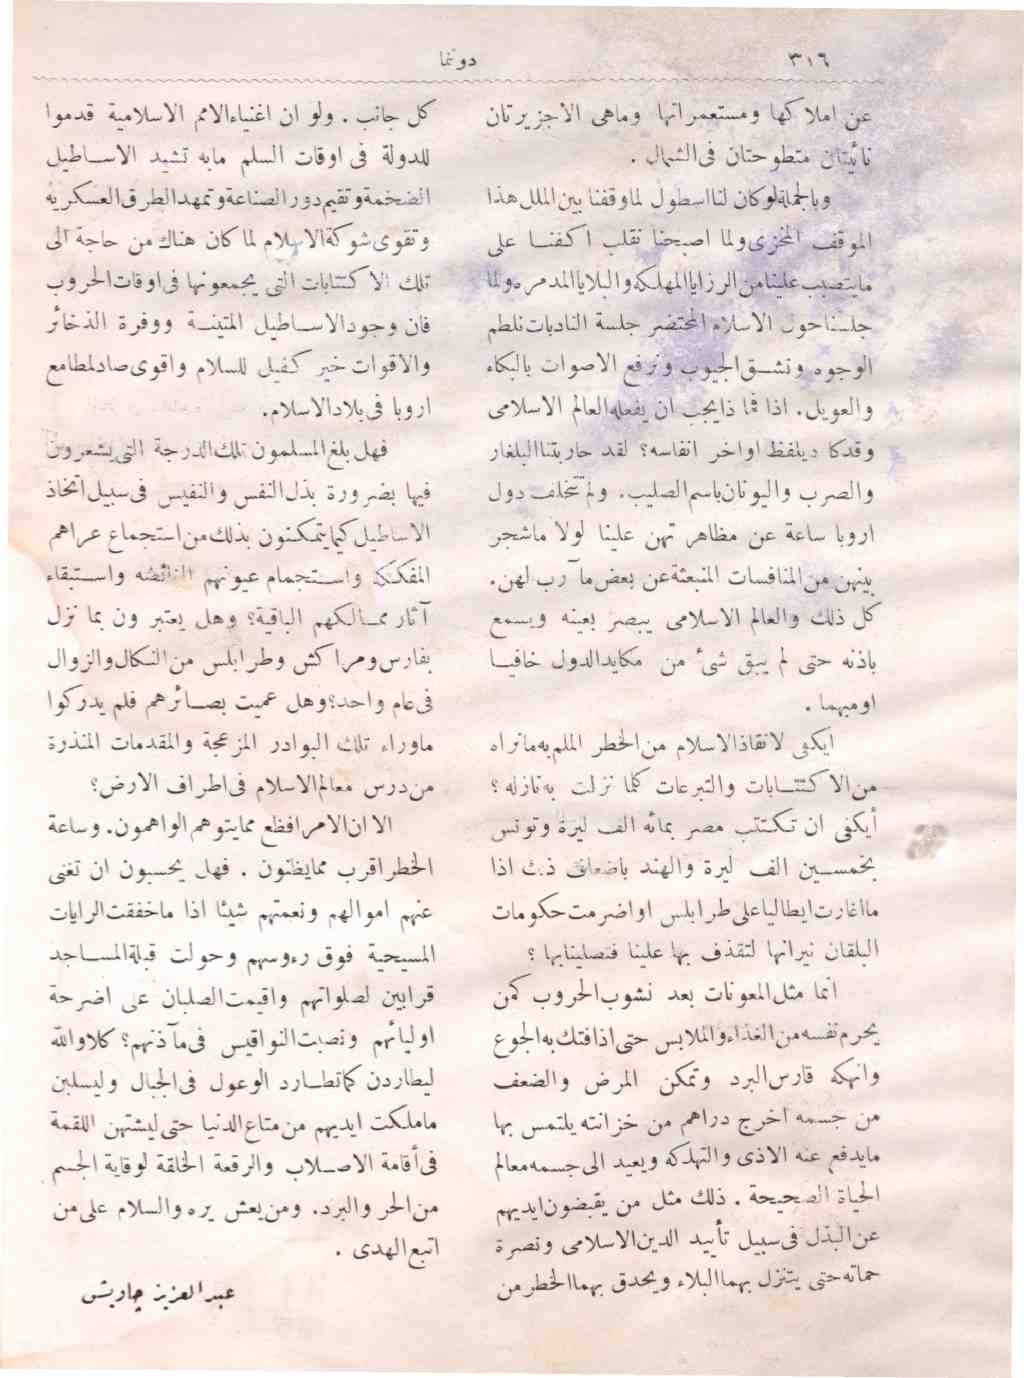 ٣١٦
دوننما
عن املاكها ومستعمراتها وماهى الاجزيرتان
نائيتان متطوحتان فى الشمال .
وبالجملة لوكان لنا اسطول لما وقفنا بين الملل هذا
الموقف المخزى ولما اصبحنا نقلب اكفنا على
ماينصبب علينا من الرزايا المهلكه والبلايا المدمره ولما
جلسنا حول الاسلام المحتضر جلسة النادبات نلطم
الوجوه ونشق الجيوب ونرفع الاصوات بالبكاء
والعويل. اذا فما ذايجب ان يفعله العالم الاسلامى
وقدكاد يلفظ اواخر انفاسه؟ لقد حاربتنا البلغار
والصرب واليونان باسم الصليب. ولم تتخلف دول
اروبا ساعة عن مظاهرتهن علينا لولا ماشجر
بينهن من المنافسات المنبعثة عن بعض مآرب لهن.
كل ذلك والعالم الاسلامى يبصر بعينه ويسمع
باذنه حتى لم يبق شئ من مكايد الدول خافيا
اومبهما .
ايكفى لانقاذ الاسلام من الخطر الملم به مانراه
من الاكتتابات والتبرعات كلما نزلت به نازله ؟
أيكفى ان تكتتب مصر بمائه الف ليرة وتونس
بخمسين الف ليرة والهند باضعاف ذلك اذا
مااغارت ايطاليا على طرابلس اواضرمت حكومات
البلقان نيرانها لتقذف بها علينا فتصلينا بها ؟
انما مثل المعونات بعد نشوب الحروب كمن
يحرم نفسه من الغذاء والملابس حتى اذا فتك به الجوع
وانهكه قارس البرد وتمكن المرض والضعف
من جسمه اخرج دراهم من خزانته يلتمس بها
مايدفع عنه الاذى والتهلكه ويعيد الى جسمه معالم
الحياة الصحيحة . ذلك مثل من يقبضون ايديهم
عن البذل فى سبيل تأييد الدين الاسلامى ونصرة
حماته حتى يتنزل بهما البلاء ويحدق بهما الخطر من
كل جانب . ولو ان اغنياء الامم الاسلامية قدموا
للدولة فى اوقات السلم مابه تشيد الاساطيل
الضخمة وتقيم دور الصناعة وتمهد الطرق العسكرية
وتقوى شوكة الاسلام لما كان هناك من حاجة الى
تلك الاكتتابات التى يجمعونها فى اوقات الحروب
فان وجود الاساطيل المتينة ووفرة الذخائر
والاقوات خير كفيل للسلام واقوى صاد لمطامع
اروبا فى بلاد الاسلام.
فهل بلغ المسلمون تلك الدرجة التى يشعرون
فيها بضرورة بذل النفس والنفيس فى سبيل اتخاذ
الاساطيل كيما يتمكنون بذلك من استجماع عراهم
المفككة واستجمام عيونهم واستبقاء
آثار ممالكهم الباقية؟ وهل يعتبرون بما نزل
بفارس ومراكش وطرابلس من النكال والزوال
فى عام واحد؟ وهل عميت بصائرهم فلم يدركوا
ماوراء تلك البوادر المزعجة والمقدمات المنذرة
من درس معالم الاسلام فى اطراف الارض؟
الا ان الامر افظع مما يتوهم الواهمون. وساعة
الخطر اقرب ممايظنون . فهل يحسبون ان تغنى
عنهم اموالهم ونعمتهم شيئا اذا ماخفقت الرايات
المسيحية فوق رءوسهم وحولت قبلة المساجد
قرابين لصلواتهم واقيمت الصلبان على اضرحة
اوليائهم ونصبت النواقيس فى مآذنهم؟ كلا والله
ليطاردن كما تطارد الوعول فى الجبال وليسلبن
ماملكت ايديهم من متاع الدنيا حتى ليشتهن اللقمة
فى أقامة الاصلاب والرقعة الخلقة لوقاية الجسم
من الحر والبرد. ومن يعش يره والسلام على من
اتبع الهدى .
عبد العزيز چاويش